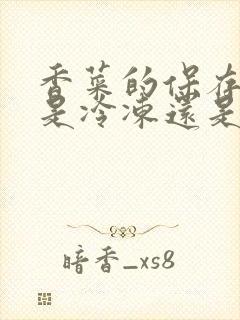 香菜的保存
是冷凍還是
暗香_xs8